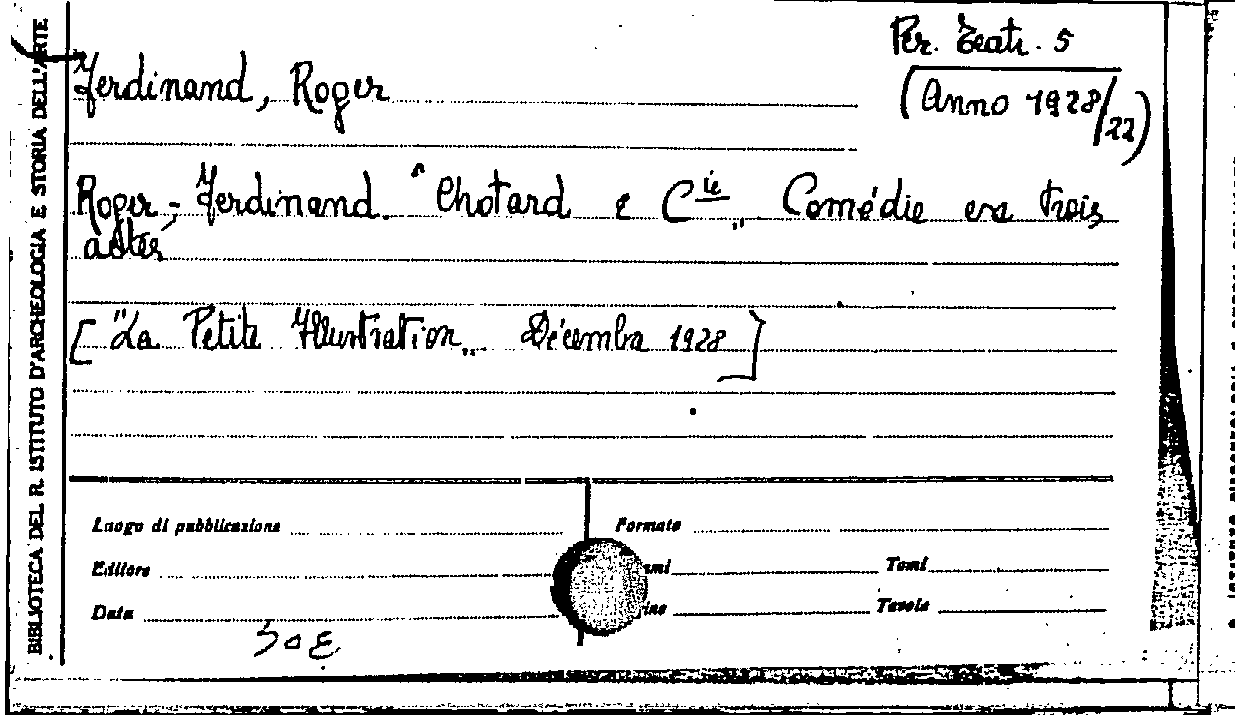 BIBLIOTECA DEL R. ISTITUTO D'ARCHEOLOGIA E STORIA DELL'ARTE
Per. Teatr. 5
(Anno 1928/22)
Ferdinand, Roger
Roger-Ferdinand. "Chotard e Cie„ Comédie en trois
actes
["La Petite Illustration„ Décembre 1928]
Luogo di pubblicazione
Formato
Editore
Tomi
Data
Tavole